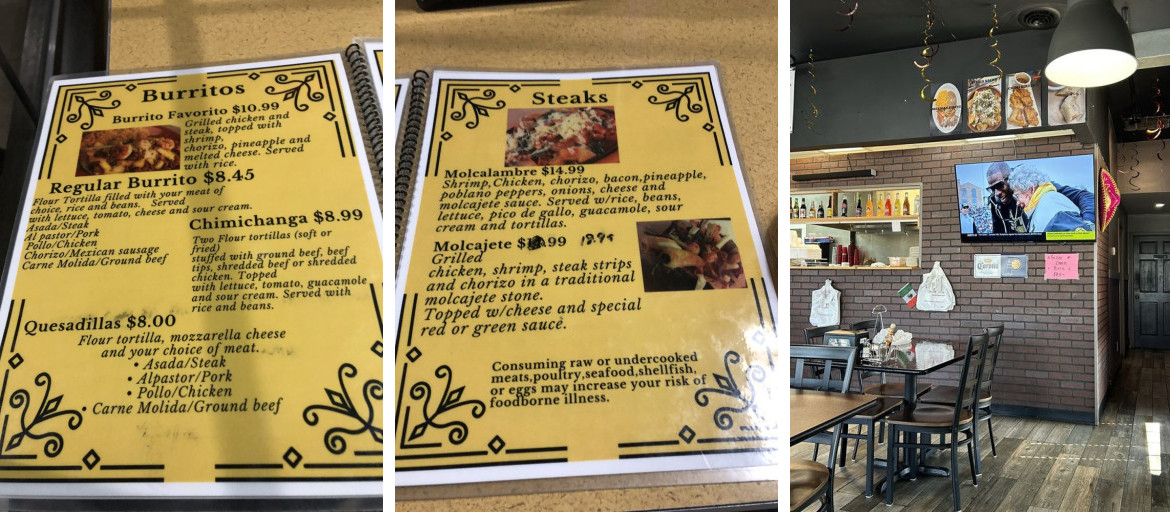 Burritos
Burrito Favorito $10.99
Grilled chicken and
steak, topped with
shrimp,
chorizo, pineapple and
melted cheese. Served
with rice.
Regular Burrito $8.45
Flour Tortilla filled with your meat of
choice, rice and beans. Served
with lettuce, tomato, cheese and sour cream.
Asada/Steak
Al pastor/Pork
Pollo/Chicken
Chorizo/Mexican sausage
Carne Molida/Ground beef
Chimichanga $8.99
Two Flour tortillas (soft or
fried)
stuffed with ground beef, beef
tips, shredded beef or shredded
chicken. Topped
with lettuce, tomato, guacamole
and sour cream. Served with
rice and beans.
Quesadillas $8.00
Flour tortilla, mozzarella cheese
and your choice of meat.
• Asada/Steak
• Alpastor/Pork
• Pollo/Chicken
• Carne Molida/Ground beef
Steaks
Molcalambre $14.99
Shrimp,Chicken, chorizo, bacon,pineapple,
poblano peppers, onions, cheese and
molcajete sauce. Served w/rice, beans,
lettuce, pico de gallo, guacamole, sour
cream and tortillas.
Molcajete
Grilled
chicken, shrimp, steak strips
and chorizo in a traditional
molcajete stone.
Topped w/cheese and special
red or green sauce.
Consuming raw or undercooked
meats,poultry,seafood,shellfish,
or eggs may increase your risk of
foodborne illness.
Corona